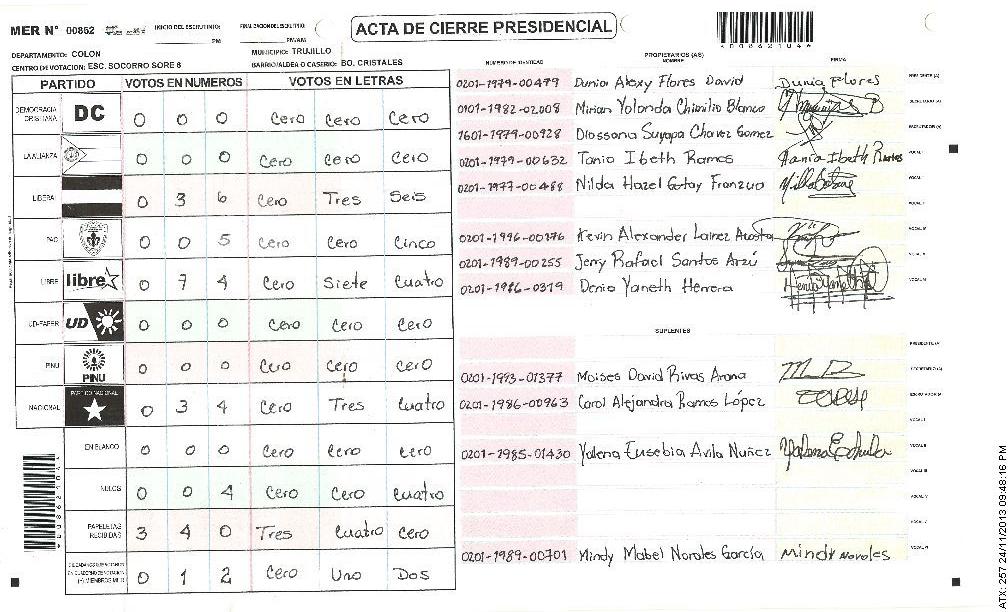 MER N° 00862 INICIO DEL ESCRUTINIO: FINALIZACION DEL ESCRUTINIO: ACTA DE CIERRE PRESIDENCIAL
PM PM/AM
DEPARTAMENTO: COLON MUNICIPIO: TRUJILLO
CENTRO DE VOTACION: ESC. SOCORRO SORE 6 BARRIO/ALDEA O CASERIO: BO. CRISTALES
PARTIDO VOTOS EN NUMEROS VOTOS EN LETRAS
DEMOCRACIA CRISTIANA DC 0 0 0 Cero Cero Cero
LA ALIANZA 0 0 0 Cero Cero Cero
LIBERAL 0 3 6 Cero Tres Seis
PAC 0 0 5 Cero Cero Cinco
LIBRE libre 0 7 4 Cero Siete Cuatro
UD-FAPER UD 0 0 0 Cero Cero Cero
PINU PINU 0 0 0 Cero Cero Cero
NACIONAL PARTIDO NACIONAL 0 3 4 Cero Tres Cuatro
EN BLANCO 0 0 0 Cero Cero Cero
NULOS 0 0 4 Cero Cero Cuatro
PAPELETAS RECIBIDAS 3 4 0 Tres Cuatro Cero
0 1 2 Cero Uno Dos
PROPIETARIOS (AS)
NUMERO DE IDENTIDAD NOMBRE FIRMA
0201-1979-00499 Dunia Alexy Flores David Dunia Flores PRESIDENTE (A)
0101-1982-02008 Mirian Yolanda Chimilio Blanco SECRETARIO (A)
1601-1979-00928 Suyapa Chavez Gomez ESCRUTADOR (A)
0201-1979-00632 Tania Ibeth Ramos Tania Ibeth Ramos VOCAL I
0201-1977-00488 Nilda Hazel VOCAL II
VOCAL III
0201-1996-00176 Kevin Alexander Lainez Acosta VOCAL IV
0201-1989-00255 Jerry Rafael Santos Arzú VOCAL V
0201-1986-0319 Denia Yaneth Herrera VOCAL VI
SUPLENTES
PRESIDENTE (A)
0201-1993-01377 Moises David Rivas Arana SECRETARIO (A)
0201-1986-00963 Carol Alejandra Ramos López ESCRUTADOR (A)
VOCAL I
0201-1985-01430 Yalena Eusebia Avila Nuñez VOCAL II
VOCAL III
VOCAL IV
VOCAL V
0201-1989-00701 Mindy Mabel Norales García Mindy Norales VOCAL VI
ATX: 257 24/11/2013 09:48:16 PM